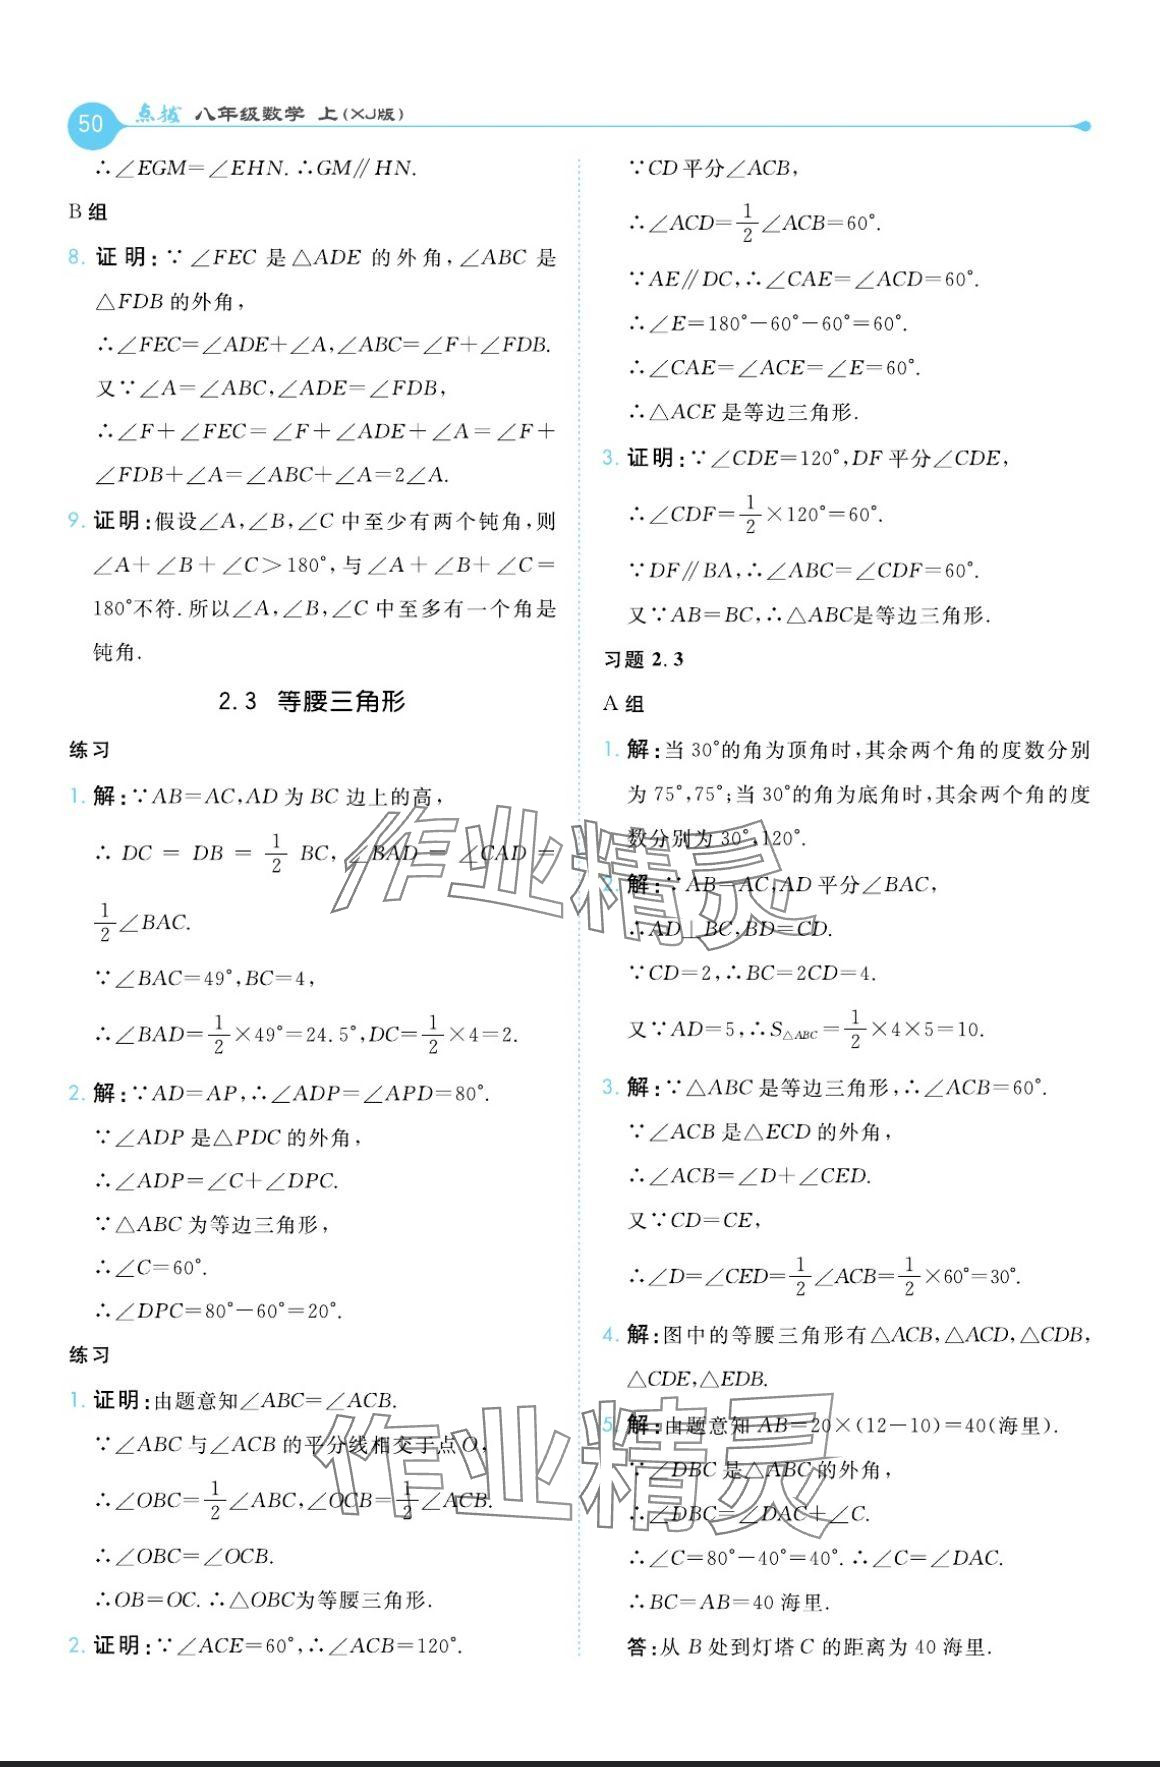 50 点拨 八年级数学 上(XJ版)
∴∠EGM=∠EHN. ∴GM∥HN.
B 组
8. 证明:∵∠FEC 是△ADE 的外角,∠ABC 是
△FDB 的外角,
∴∠FEC=∠ADE+∠A,∠ABC=∠F+∠FDB.
又∵∠A=∠ABC,∠ADE=∠FDB,
∴∠F+∠FEC=∠F+∠ADE+∠A=∠F+
∠FDB+∠A=∠ABC+∠A=2∠A.
9. 证明:假设∠A,∠B,∠C 中至少有两个钝角,则
∠A+∠B+∠C>180°,与∠A+∠B+∠C=
180°不符.所以∠A,∠B,∠C 中至多有一个角是
钝角.
2.3 等腰三角形
练习
1. 解:∵AB=AC,AD 为 BC 边上的高,
∴ DC = DB = 1/2 BC, ∠BAD = ∠CAD =
1/2∠BAC.
∵∠BAC=49°,BC=4,
∴∠BAD=1/2×49°=24.5°,DC=1/2×4=2.
2. 解:∵AD=AP,∴∠ADP=∠APD=80°.
∵∠ADP 是△PDC 的外角,
∴∠ADP=∠C+∠DPC.
∵△ABC 为等边三角形,
∴∠C=60°.
∴∠DPC=80°-60°=20°.
练习
1. 证明:由题意知∠ABC=∠ACB.
∵∠ABC 与∠ACB 的平分线相交于点 O,
∴∠OBC=1/2∠ABC,∠OCB=1/2∠ACB.
∴∠OBC=∠OCB.
∴OB=OC. ∴△OBC为等腰三角形.
2. 证明:∵∠ACE=60°,∴∠ACB=120°.
∵CD 平分∠ACB,
∴∠ACD=1/2∠ACB=60°.
∵AE∥DC,∴∠CAE=∠ACD=60°.
∴∠E=180°-60°-60°=60°.
∴∠CAE=∠ACE=∠E=60°.
∴△ACE 是等边三角形.
3. 证明:∵∠CDE=120°,DF 平分∠CDE,
∴∠CDF=1/2×120°=60°.
∵DF∥BA,∴∠ABC=∠CDF=60°.
又∵AB=BC,∴△ABC是等边三角形.
习题 2.3
A 组
1. 解:当 30°的角为顶角时,其余两个角的度数分别
为 75°,75°;当 30°的角为底角时,其余两个角的度
数分别为 30°,120°.
2. 解:∵AB=AC,AD 平分∠BAC,
∴AD⊥BC,BD=CD.
∵CD=2,∴BC=2CD=4.
又∵AD=5,∴S△ABC=1/2×4×5=10.
3. 解:∵△ABC 是等边三角形,∴∠ACB=60°.
∵∠ACB 是△ECD 的外角,
∴∠ACB=∠D+∠CED.
又∵CD=CE,
∴∠D=∠CED=1/2∠ACB=1/2×60°=30°.
4. 解:图中的等腰三角形有△ACB,△ACD,△CDB,
△CDE,△EDB.
5. 解:由题意知 AB=20×(12-10)=40(海里).
∵∠DBC 是△ABC 的外角,
∴∠DBC=∠DAC+∠C.
∴∠C=80°-40°=40°. ∴∠C=∠DAC.
∴BC=AB=40 海里.
答:从 B 处到灯塔 C 的距离为 40 海里.
作业精灵
作业精灵